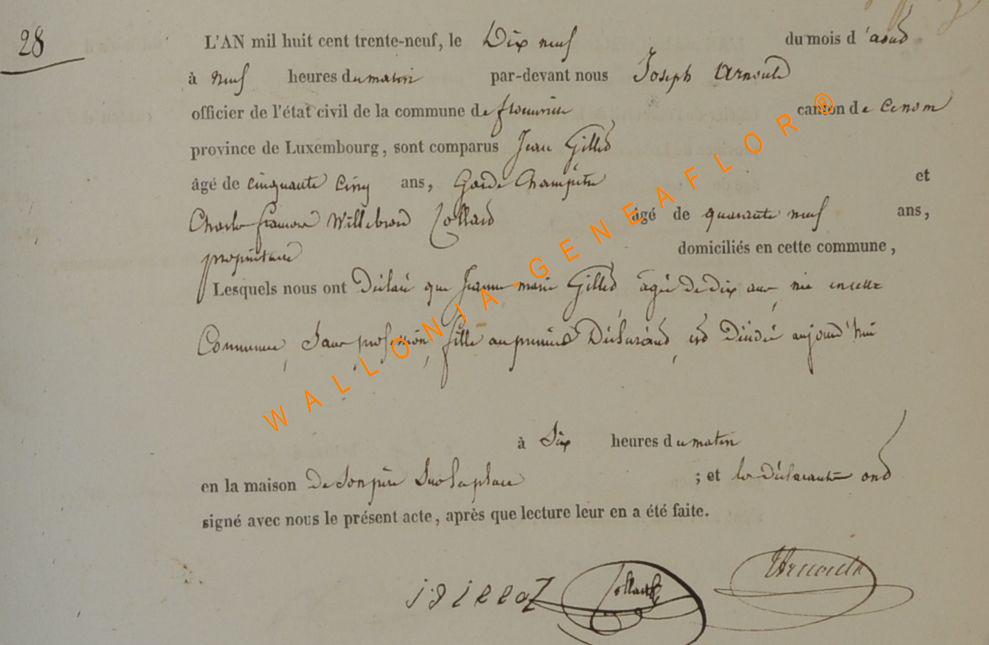 28
L'AN mil huit cent trente-neuf, le Dix neuf du mois d'aout
à neuf heures du matin par-devant nous Joseph Arnould
officier de l'état civil de la commune de canton de
province de Luxembourg, sont comparus Jean Gilles
âgé de cinquante cinq ans, Garde Champêtre et
Charles françois Willebrord Collard âgé de quarante neuf ans,
propriétaire domiciliés en cette commune,
Lesquels nous ont Déclaré que Jeanne marie Gilles agée de dix ans, née en cette
Commune, Sans profession, fille au premier Déclarant, est Décédée aujourd'hui
à Six heures du matin
en la maison de son père Sur la place ; et les déclarants ont
signé avec nous le présent acte, après que lecture leur en a été faite.
Collard Arnould
WALLONIA - GENEAFLOR ®